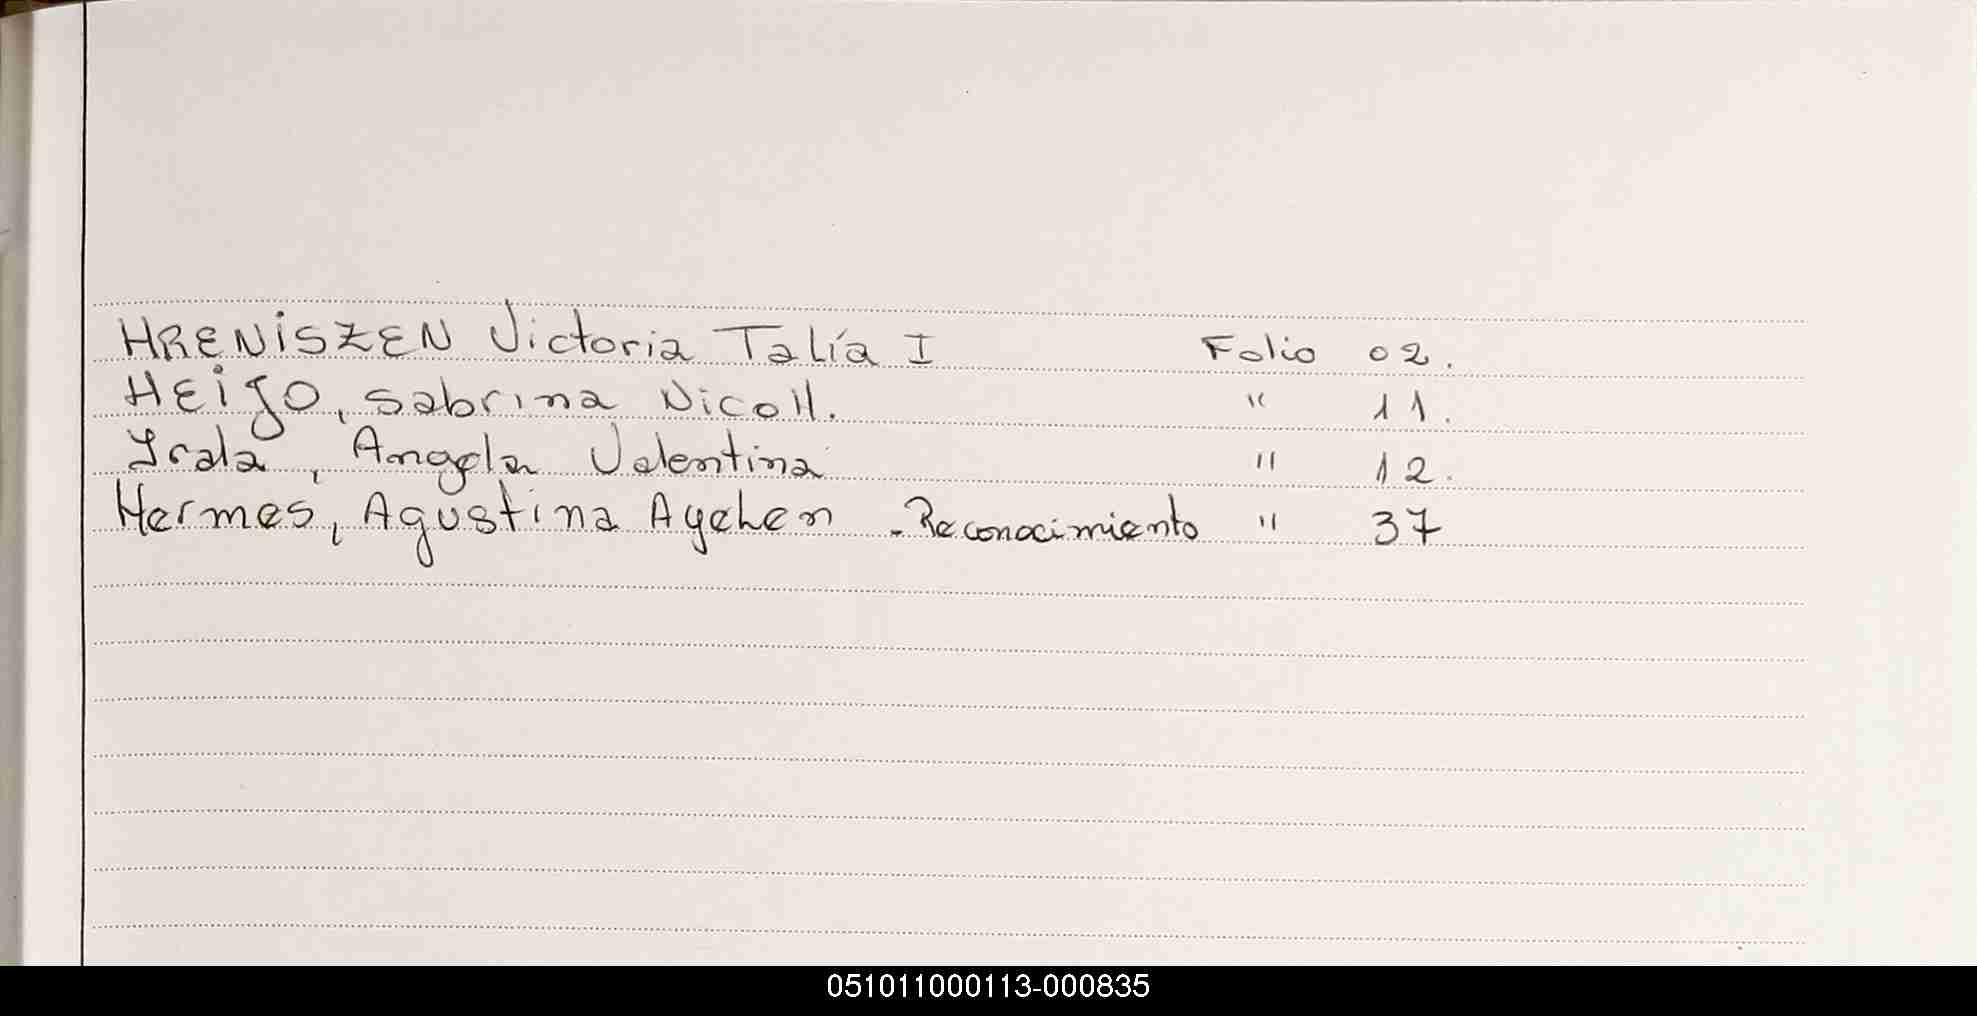 HRENISZEN Victoria Talía I Folio 02.
HEIJO, Sabrina Nicoll. " 11.
Irala, Angela Valentina " 12.
Hermes, Agustina Ayelen - Reconocimiento " 37
051011000113-000835